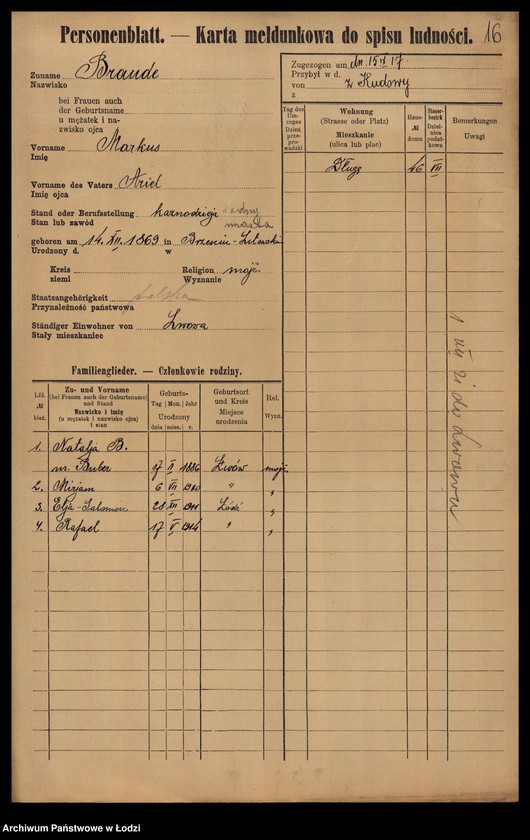 Personenblatt. — Karta meldunkowa do spisu ludności. 16
Zuname Braude
Nazwisko
bei Frauen auch
der Geburtsname
u mężatek i na-
zwisko ojca
Vorname Markus
Imię
Vorname des Vaters Ariel
Imię ojca
Stand oder Berufsstellung kaznodzieja
Stan lub zawód miasta
geboren am 14. XII. 1869 in Brześciu-Litewskim
Urodzony d. w
Kreis Religion mojż.
ziemi Wyznanie
Staatsangehörigkeit polska
Przynależność państwowa
Ständiger Einwohner von Lwowa
Stały mieszkaniec
Zugezogen am dn. 15 IX 17.
Przybył w d.
von z Kudowy
z
Tag des
Um-
zuges
Dzień
prze-
prowadzki
Wohnung
(Strasse oder Platz)
Mieszkanie
(ulica lub plac)
Haus-
№
domu
Haus-
bezirk
Dziel-
nica
podatkowa
Bemerkungen
Uwagi
Długa 46 VII
1 VII 21 do Lwowa
Familienglieder. — Członkowie rodziny.
Lfd.
№
bież.
Zu- und Vorname
(bei Frauen auch der Geburtsname)
und Stand
Nazwisko i imię
(u mężatek i nazwisko ojca)
i stan
Geburts-
Tag Mon. Jahr
Urodzony
dnia mies. r.
Geburtsort
und Kreis
Miejsce
urodzenia
Rel.
Wyzn.
1. Natalja B.
m. Buber 17 II 1886 Lwów mojż.
2. Mirjam 6 VII 1910 " "
3. Elja-Salomon 28 XII 1911 Łódź "
4. Rafael 17 V 1914 " "
Archiwum Państwowe w Łodzi